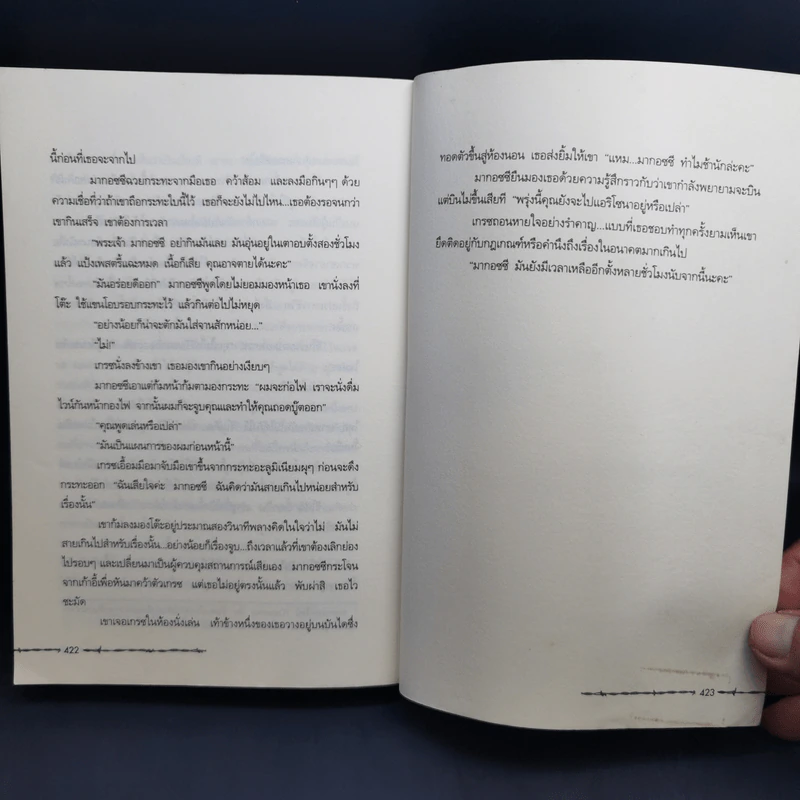 นี้ก่อนที่เธอจะจากไป
มากอซซีฉวยกระทะจากมือเธอ คว้าส้อม และลงมือกินๆๆ ด้วย
ความเชื่อที่ว่าถ้าเขาถือกระทะใบนี้ไว้ เธอก็จะยังไม่ไปไหน...เธอต้องรอจนกว่า
เขากินเสร็จ เขาต้องการเวลา
“พระเจ้า มากอซซี อย่ากินมันเลย มันอุ่นอยู่ในเตาอบตั้งสองชั่วโมง
แล้ว แป้งเพสตรี้แฉะหมด เนื้อก็เสีย คุณอาจตายได้นะคะ”
“มันอร่อยดีออก” มากอซซีพูดโดยไม่ยอมมองหน้าเธอ เขานั่งลงที่
โต๊ะ ใช้แขนโอบรอบกระทะไว้ แล้วกินต่อไปไม่หยุด
“อย่างน้อยก็น่าจะตักมันใส่จานสักหน่อย...”
“ไม่!”
เกรซนั่งลงข้างเขา เธอมองเขากินอย่างเงียบๆ
มากอซซีเอาแต่ก้มหน้าก้มตามองกระทะ “ผมจะก่อไฟ เราจะนั่งดื่ม
ไวน์กันหน้ากองไฟ จากนั้นผมก็จะจูบคุณและทำให้คุณถอดบู๊ตออก”
“คุณพูดเล่นหรือเปล่า”
“มันเป็นแผนการของผมก่อนหน้านี้”
เกรซเอื้อมมือมาจับมือเขาขึ้นจากกระทะอะลูมิเนียมผุๆ ก่อนจะดึง
กระทะออก “ฉันเสียใจค่ะ มากอซซี ฉันคิดว่ามันสายเกินไปหน่อยสำหรับ
เรื่องนั้น”
เขาก้มลงมองโต๊ะอยู่ประมาณสองวินาทีพลางคิดในใจว่าไม่ มันไม่
สายเกินไปสำหรับเรื่องนั้น...อย่างน้อยก็เรื่องจูบ...ถึงเวลาแล้วที่เขาต้องเลิกย่อง
ไปรอบๆ และเปลี่ยนมาเป็นผู้ควบคุมสถานการณ์เสียเอง มากอซซีกระโจน
จากเก้าอี้เพื่อหันมาคว้าตัวเกรซ แต่เธอไม่อยู่ตรงนั้นแล้ว พับผ่าสิ เธอไว
ชะมัด
เขาเจอเกรซในห้องนั่งเล่น เท้าข้างหนึ่งของเธอวางอยู่บนบันไดซึ่ง
422
ทอดตัวขึ้นสู่ห้องนอน เธอส่งยิ้มให้เขา “แหม...มากอซซี ทำไมช้านักล่ะคะ”
มากอซซียืนมองเธอด้วยความรู้สึกราวกับว่าเขากำลังพยายามจะบิน
แต่บินไม่ขึ้นเสียที “พรุ่งนี้คุณยังจะไปแอริโซนาอยู่หรือเปล่า”
เกรซถอนหายใจอย่างรำคาญ...แบบที่เธอชอบทำทุกครั้งยามเห็นเขา
ยึดติดอยู่กับกฎเกณฑ์หรือคำนึงถึงเรื่องในอนาคตมากเกินไป
“มากอซซี มันยังมีเวลาเหลืออีกตั้งหลายชั่วโมงนับจากนี้นะคะ”
423